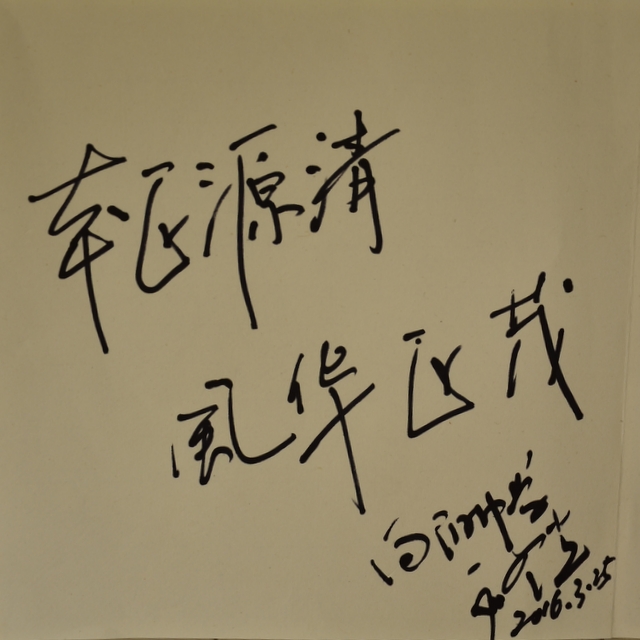 本正源清
風华正茂
2016.3.25